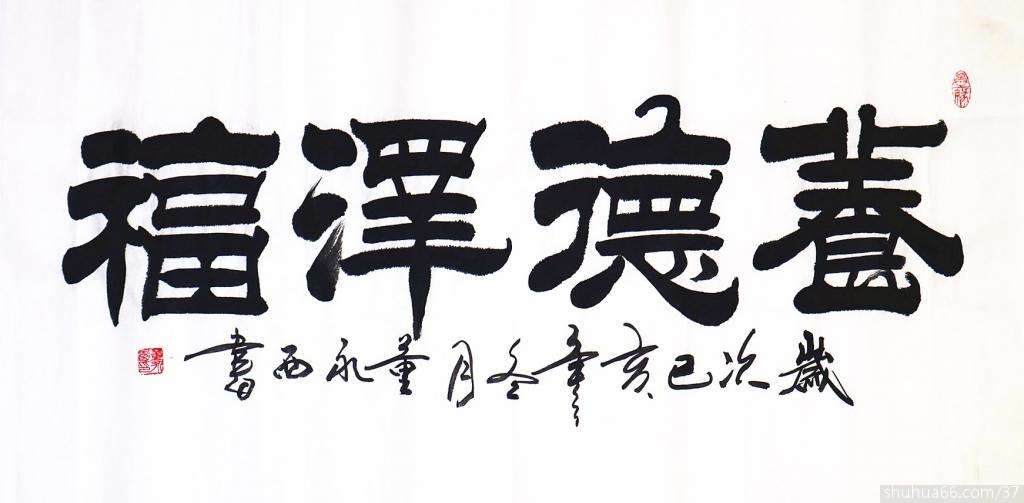 養德澤福
歲次己亥年冬月董永西書
shuhua66.com/37